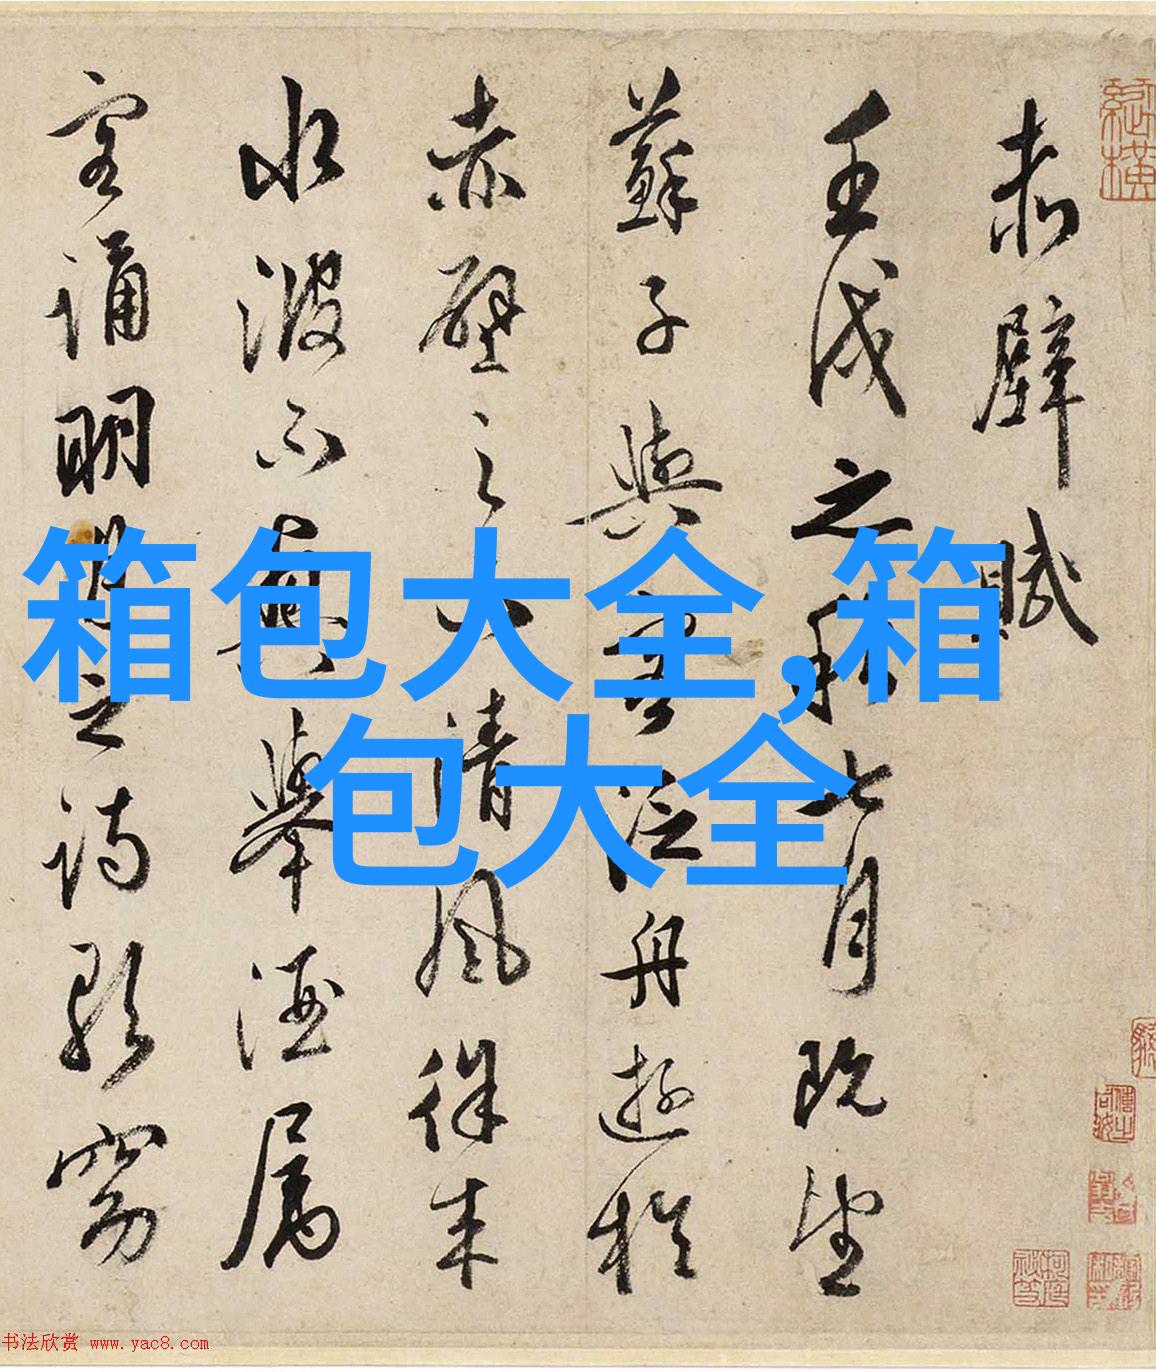 赤壁賦
壬戌之秋七月既望
蘇子與客泛舟遊於
赤壁之下清風徐來
水波不興舉酒屬
客誦明月之詩歌窈
箱包大全,箱
包大全
书法欣赏 www.yac8.com